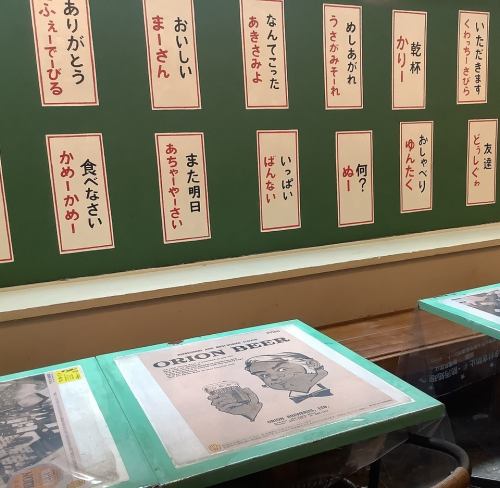 ありがとう
ふぇーでーびる
おいしい
まーさん
なんてこった
あきさみよ
めしあがれ
うさがみそーれ
乾杯
かりー
いただきます
くわっちーさびら
食べなさい
かめーかめー
また明日
あちゃーやーさい
いっぱい
ばんない
何?
ぬー
おしゃべり
ゆんたく
友達
どぅしぐゎ
ORION BEER
ORION BREWERIES, LTD.